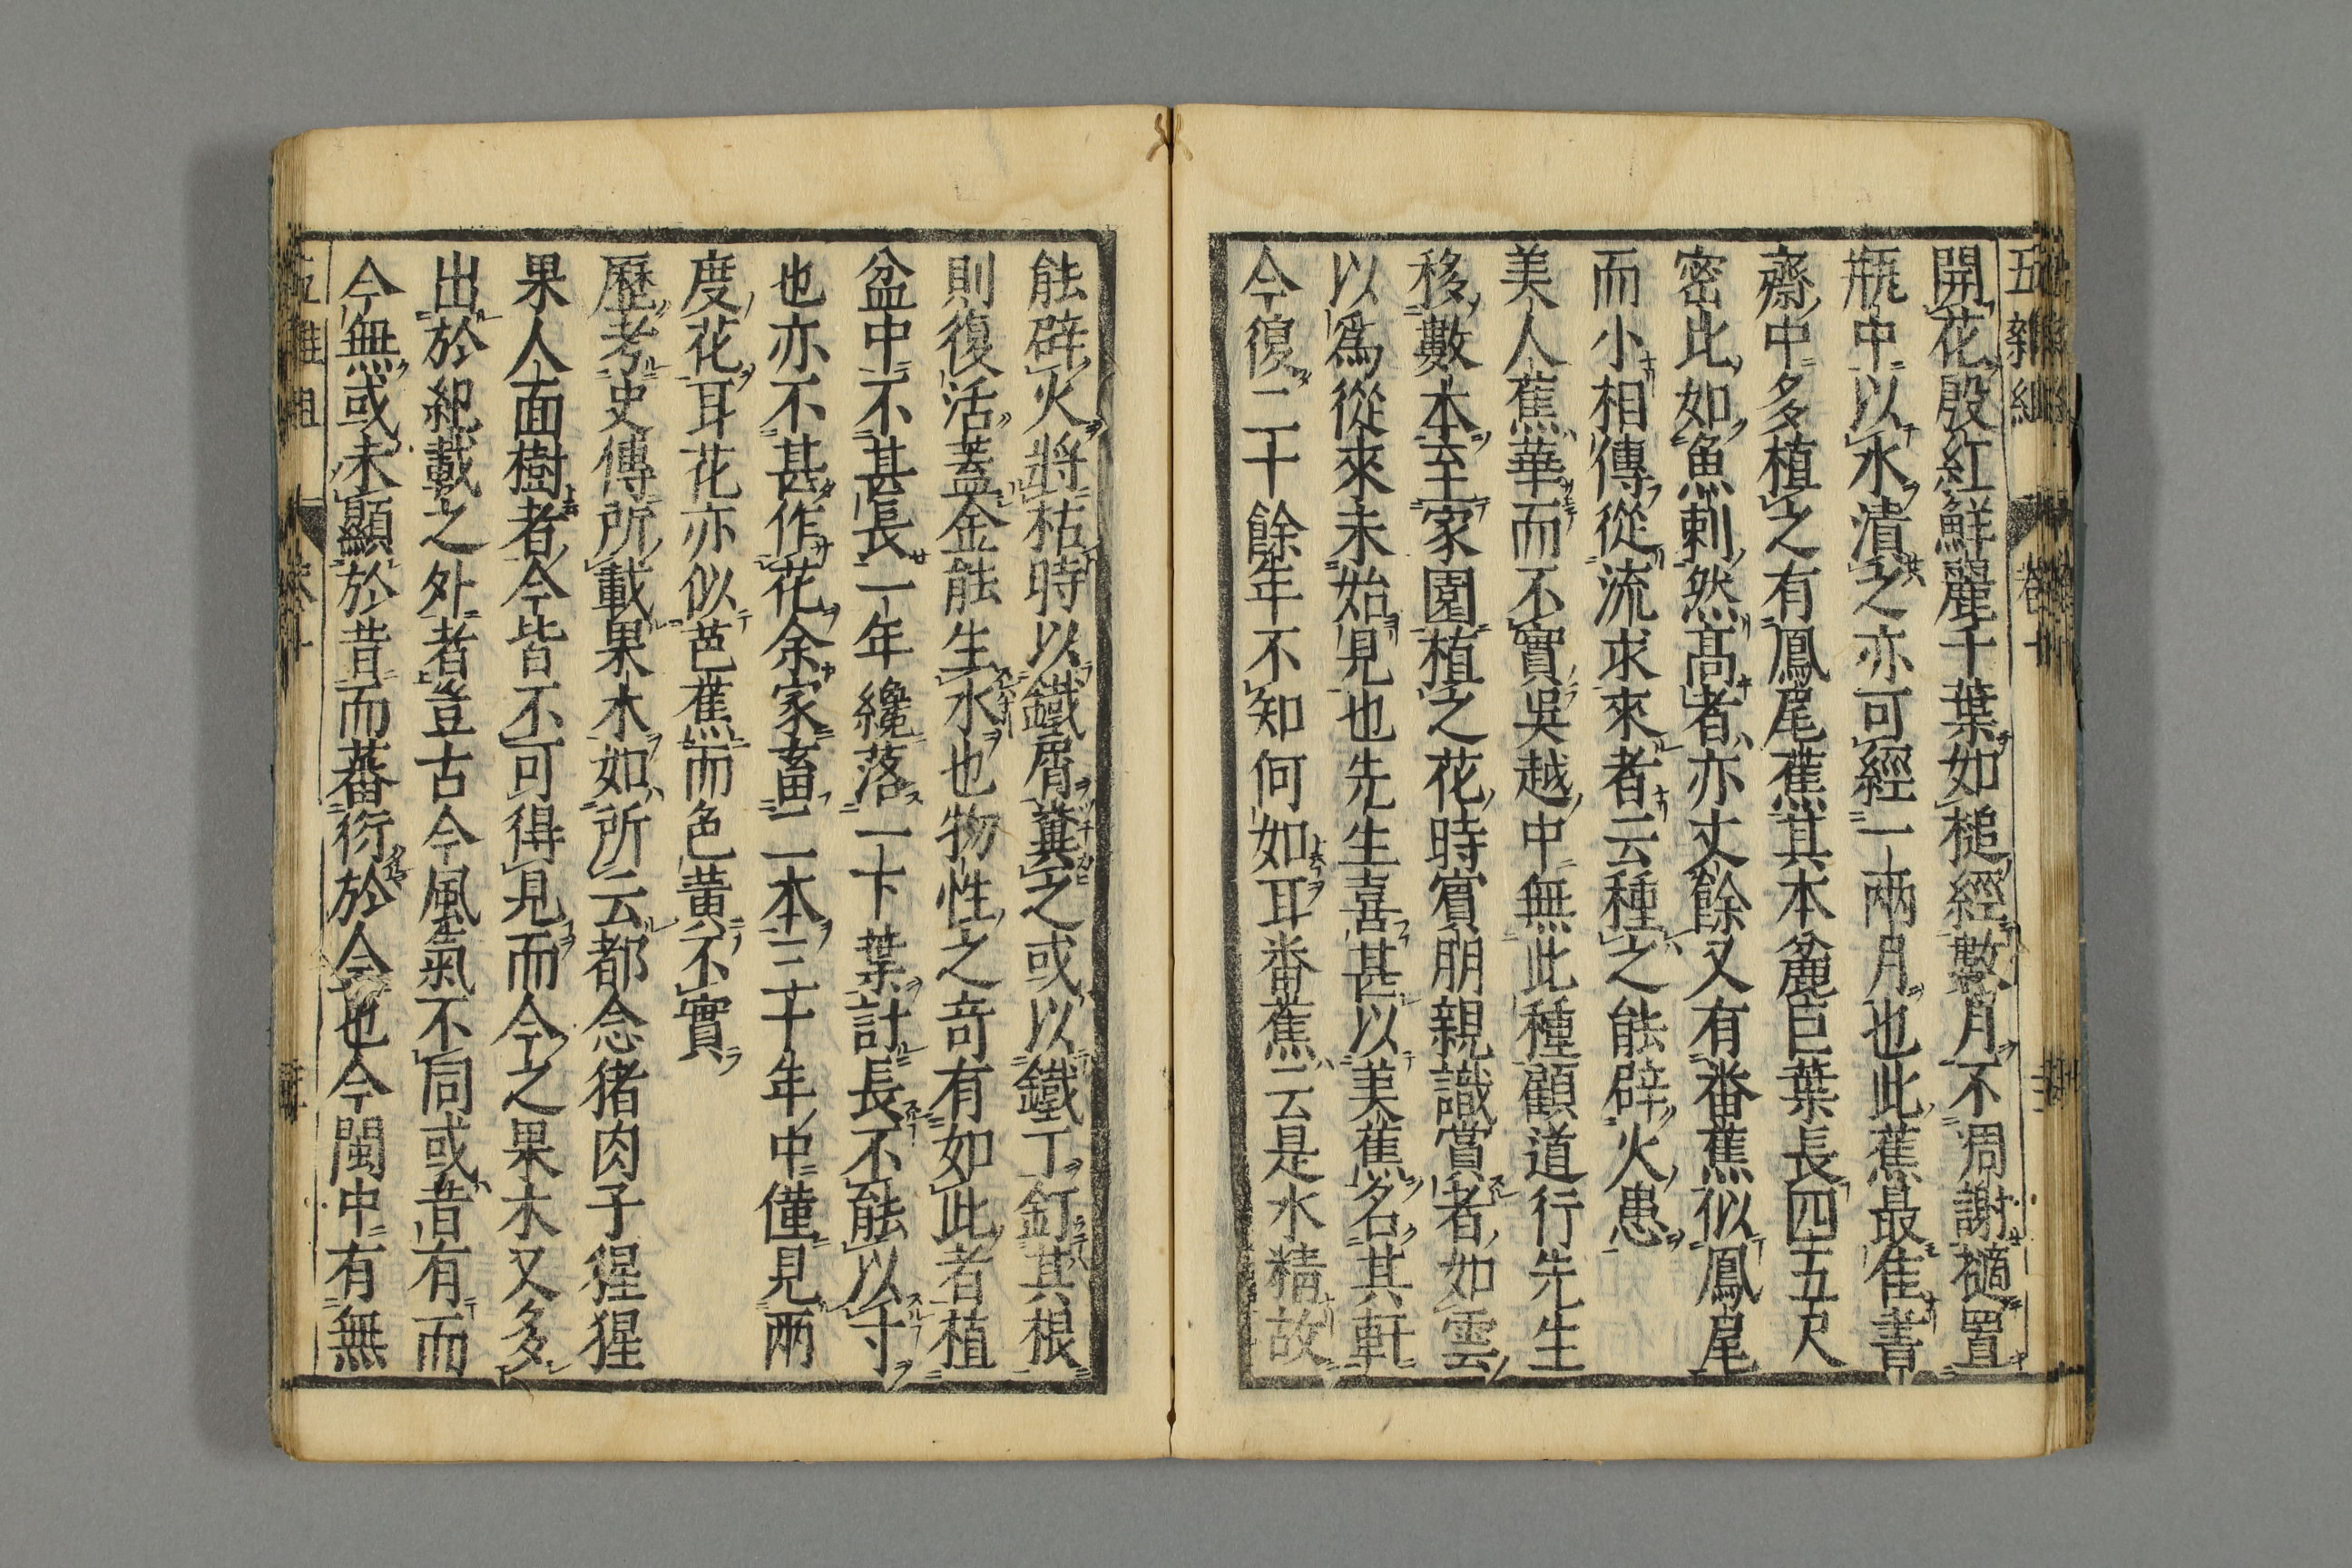 五雜組
卷十
開花殷紅鮮麗千葉如槌經數月不凋謝摘置
瓶中以水漬之亦可經一兩月也此蕉最佳書
齋中多植之有鳳尾蕉其本麄巨葉長四五尺
密比如魚刺然高者亦丈餘又有番蕉似鳳尾
而小相傳從流求來者云種之能辟火患
美人蕉華而不實吳越中無此種顧道行先生
移數本至家園植之花時賓朋親識賞者如雲
以為從來未始見也先生喜甚以美蕉名其軒
今復二十餘年不知何如耳番蕉云是水精故
能辟火將枯時以鐵屑糞之或以鐵丁釘其根
則復活蓋金能生水也物性之奇有如此者植
盆中不甚長一年纔落一下葉計長不能以寸
也亦不甚作花余家畜二本三十年中僅見兩
度花耳花亦似芭蕉而色黃不實
歷考史傳所載果木如所云都念猪肉子猩猩
果人面樹者今皆不可得見而今之果木又多
出於紀載之外者豈古今風氣不同或昔有而
今無或未顯於昔而蕃衍於今也今閩中有無
五雜組